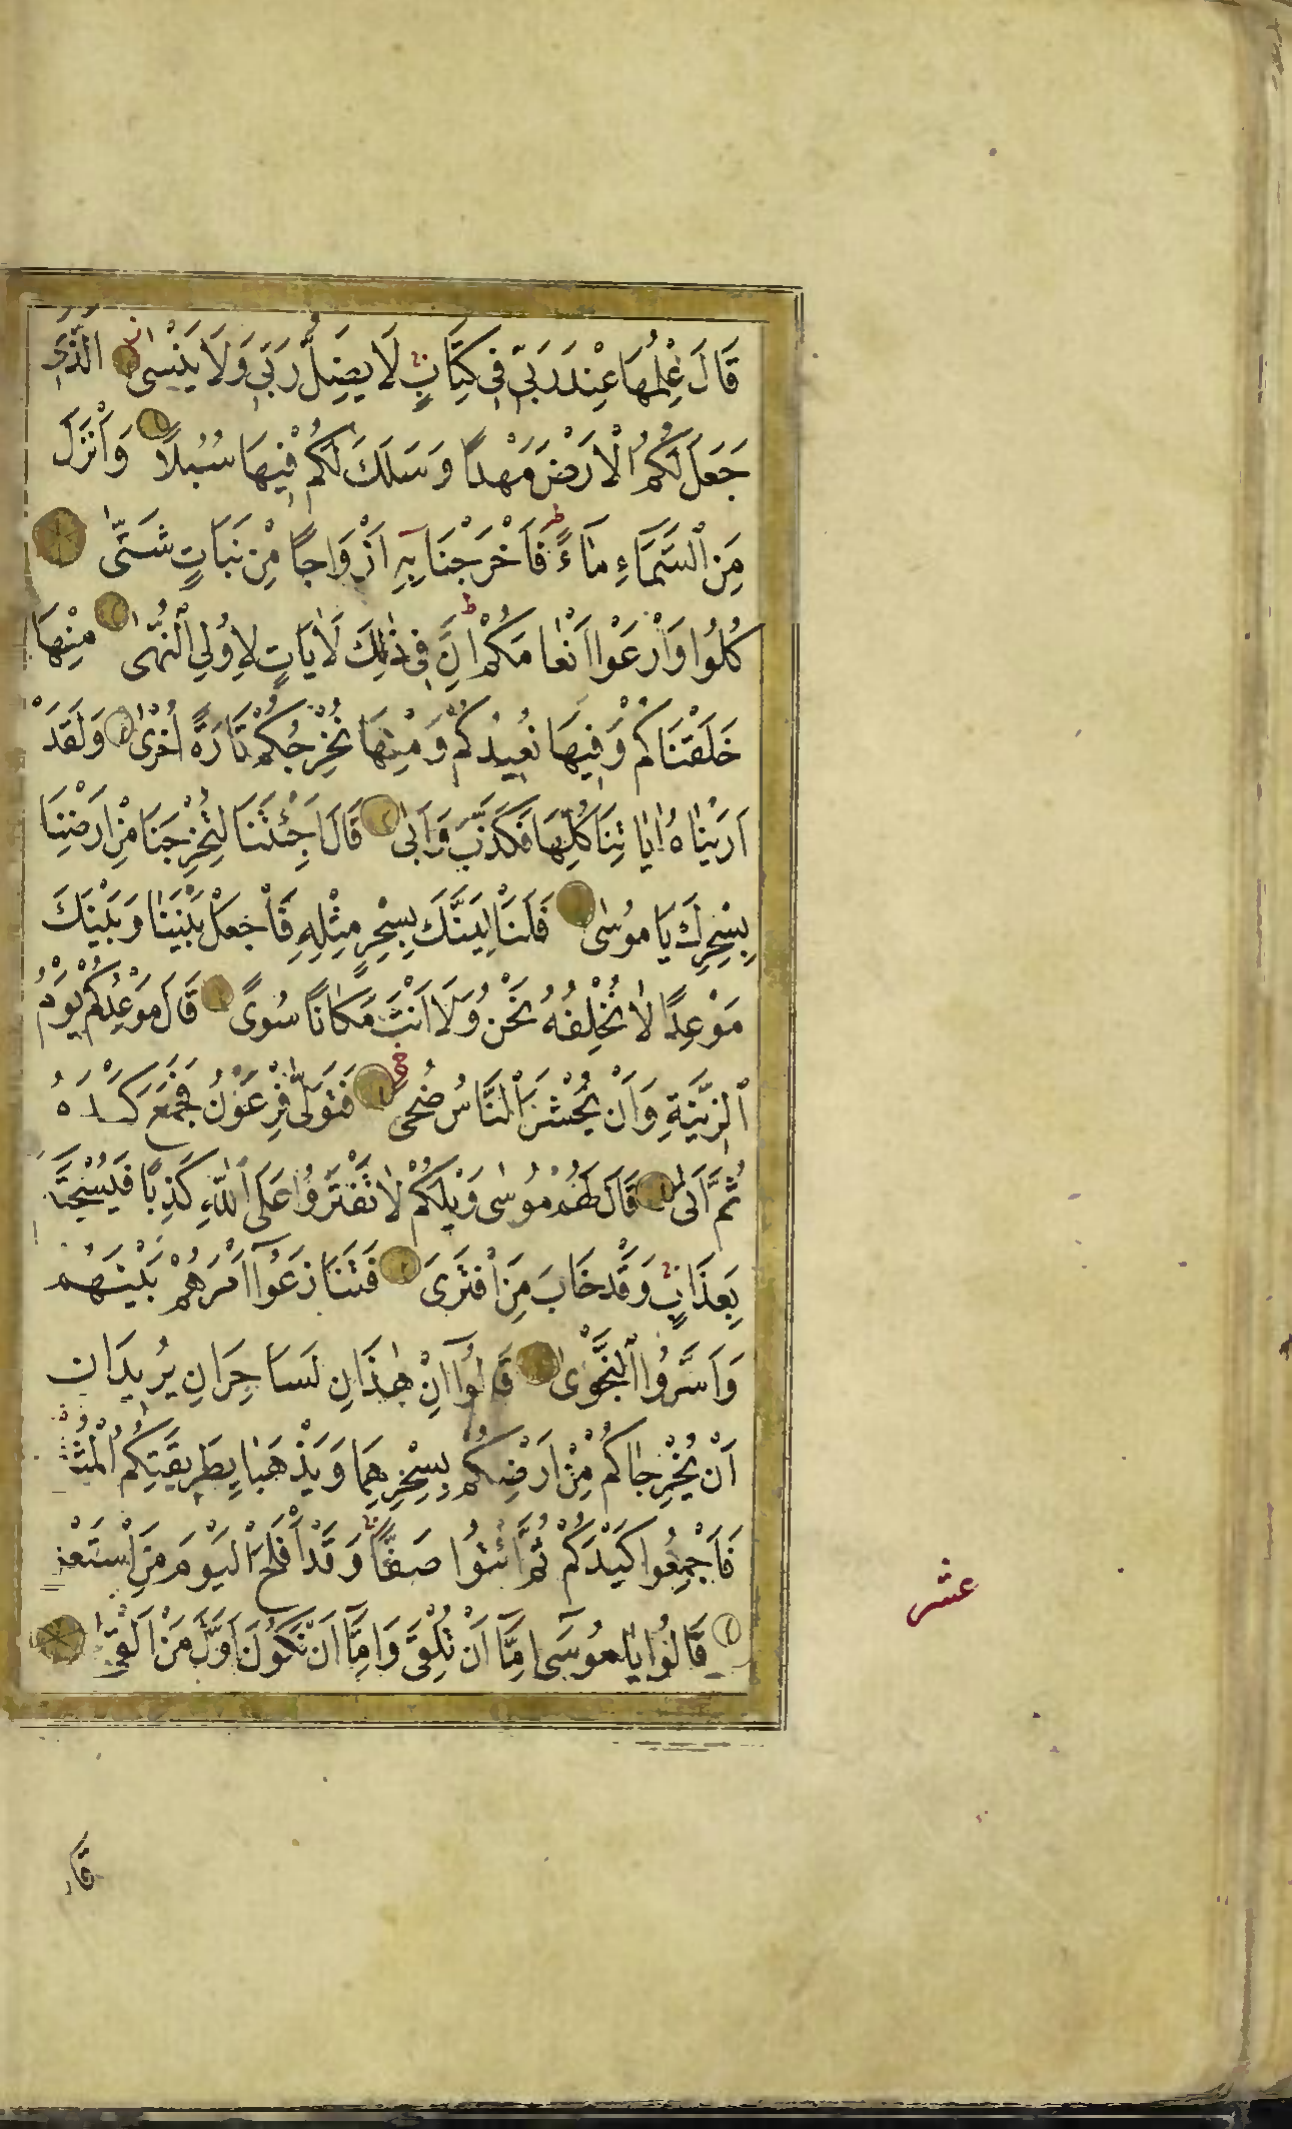 قَالَ عِلْمُهَا عِنْدَ رَبِّي فِي كِتَابٍ لَا يَضِلُّ رَبِّي وَلَا يَنْسٰى الَّذِي
جَعَلَ لَكُمُ الْاَرْضَ مَهْدًا وَسَلَكَ لَكُمْ فِيهَا سُبُلًا وَاَنْزَلَ
مِنَ السَّمَاءِ مَاءً فَاَخْرَجْنَا بِهِ اَزْوَاجًا مِنْ نَبَاتٍ شَتّٰى
كُلُوا وَارْعَوْا اَنْعَامَكُمْ اِنَّ فِي ذٰلِكَ لَاٰيَاتٍ لِاُولِي النُّهٰى مِنْهَا
خَلَقْنَاكُمْ وَفِيهَا نُعِيدُكُمْ وَمِنْهَا نُخْرِجُكُمْ تَارَةً اُخْرٰى وَلَقَدْ
اَرَيْنَاهُ اٰيَاتِنَا كُلَّهَا فَكَذَّبَ وَاَبٰى قَالَ اَجِئْتَنَا لِتُخْرِجَنَا مِنْ اَرْضِنَا
بِسِحْرِكَ يَا مُوسٰى فَلَنَاْتِيَنَّكَ بِسِحْرٍ مِثْلِهِ فَاجْعَلْ بَيْنَنَا وَبَيْنَكَ
مَوْعِدًا لَا نُخْلِفُهُ نَحْنُ وَلَا اَنْتَ مَكَانًا سُوًى قَالَ مَوْعِدُكُمْ يَوْمُ
الزِّينَةِ وَاَنْ يُحْشَرَ النَّاسُ ضُحًى فَتَوَلّٰى فِرْعَوْنُ فَجَمَعَ كَيْدَهُ
ثُمَّ اَتٰى قَالَ لَهُمْ مُوسٰى وَيْلَكُمْ لَا تَفْتَرُوا عَلَى اللّٰهِ كَذِبًا فَيُسْحِتَكُمْ
بِعَذَابٍ وَقَدْ خَابَ مَنِ افْتَرٰى فَتَنَازَعُوٓا اَمْرَهُمْ بَيْنَهُمْ
وَاَسَرُّوا النَّجْوٰى قَالُوٓا اِنْ هٰذَانِ لَسَاحِرَانِ يُرِيدَانِ
اَنْ يُخْرِجَاكُمْ مِنْ اَرْضِكُمْ بِسِحْرِهِمَا وَيَذْهَبَا بِطَرِيقَتِكُمُ الْمُثْلٰى
فَاَجْمِعُوا كَيْدَكُمْ ثُمَّ ائْتُوا صَفًّا وَقَدْ اَفْلَحَ الْيَوْمَ مَنِ اسْتَعْلٰى
عشر
قَالُوا يَا مُوسٰٓى اِمَّٓا اَنْ تُلْقِيَ وَاِمَّٓا اَنْ نَكُونَ اَوَّلَ مَنْ اَلْقٰى
قَالَ